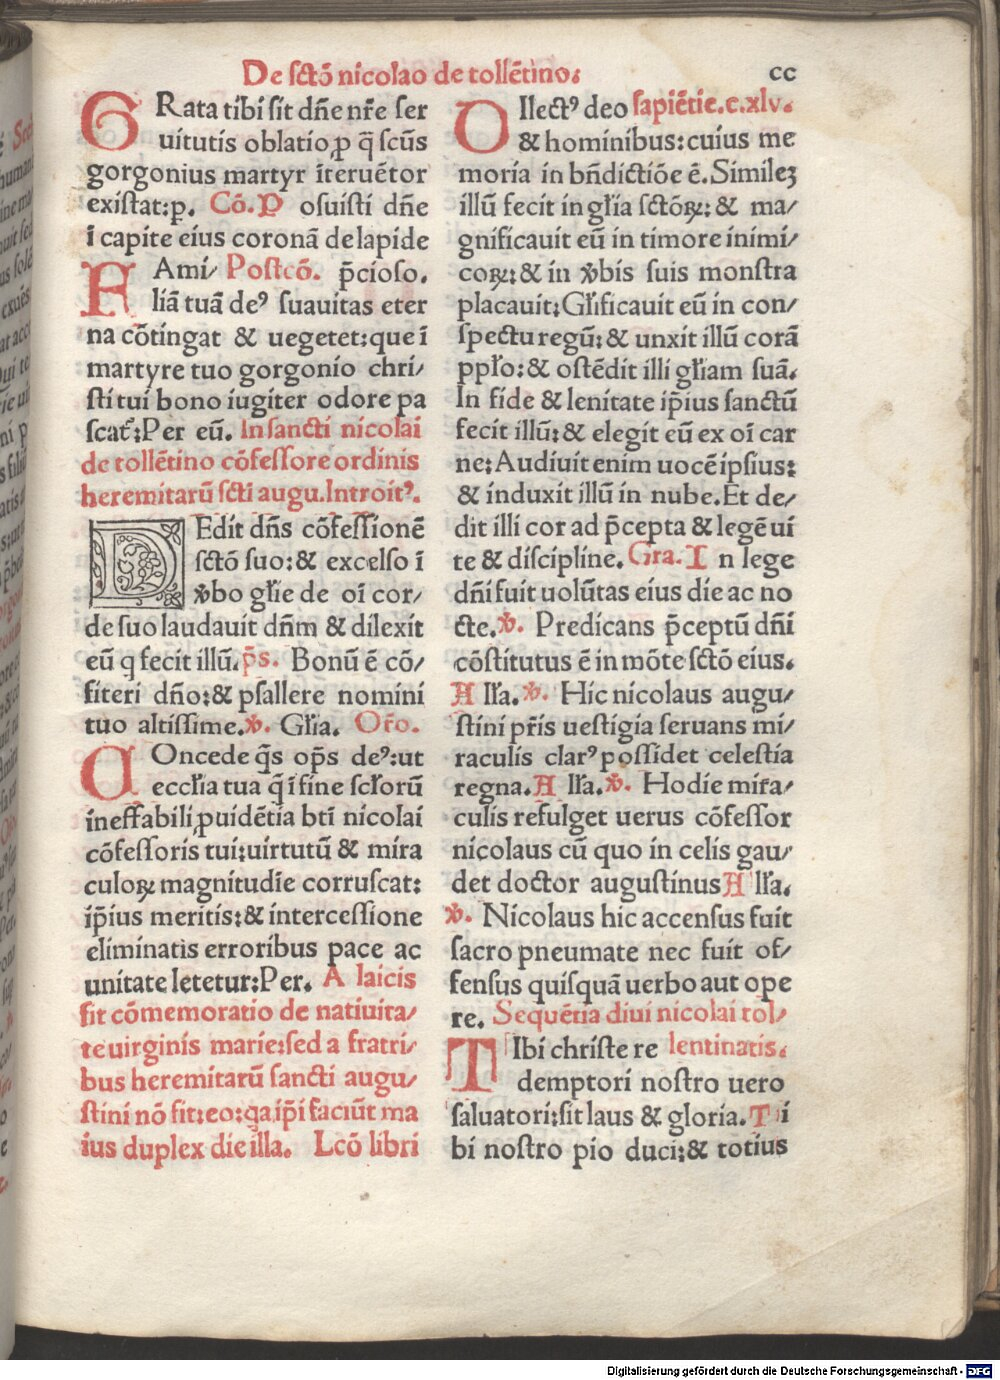 De sctō nicolao de tollētino.
cc
GRata tibi sit dn̄e nr̄e ser
uitutis oblatio, ꝓ q̄ scūs
gorgonius martyr īteruētor
existat:p. Cō.P osuisti dn̄e
ī capite eius coronā de lapide
FAmi/ Postcō. p̄cioso.
liā tuā deꝰ suauitas eter
na cōtingat & uegetet:que ī
martyre tuo gorgonio chri/
sti tui bono iugiter odore pa
scat᷑:Per eū. In sancti nicolai
de tollētino cōfessore ordinis
heremitarū scti augu.Introitꝰ.
DEdit dn̄s cōfessionē
sctō suo:& excelso ī
v̄bo gl̄ie de oī cor/
de suo laudauit dn̄m & dilexit
eū q fecit illū.p̄s. Bonū ē cō/
fiteri dn̄o:& psallere nomini
tuo altissime.v̄. Gl̄ia. Or̄o.
COncede q̄s op̄s deꝰ:ut
eccl̄ia tua q̄ ī fine scl̄orū
ineffabili ꝓuidētia bt̄i nicolai
cōfessoris tui:uirtutū & mira
culoꝝ magnitudīe corruscat:
ip̄ius meritis:& intercessione
eliminatis erroribus pace ac
unitate letetur:Per. A laicis
fit cōmemoratio de natiuita/
te uirginis marie:sed a fratri/
bus heremitarū sancti augu/
stini nō fit:eo:qa ip̄i faciūt ma
ius duplex die illa. Lcō libri
DIlectꝰ deo sapiētie.c.xlv.
& hominibus:cuius me
moria in bn̄dictiōe ē.Similez
illū fecit in gl̄ia sctōꝝ:& ma/
gnificauit eū in timore inimi/
coꝝ:& in v̄bis suis monstra
placauit:Gl̄ificauit eū in con/
spectu regū:& unxit illū corā
ppl̄o:& ostēdit illi gl̄iam suā.
In fide & lenitate ip̄ius sanctū
fecit illū:& elegit eū ex oī car
ne:Audiuit enim uocē ipsius:
& induxit illū in nube.Et de/
dit illi cor ad p̄cepta & legē ui
te & discipline. Gra.I n lege
dn̄i fuit uolūtas eius die ac no
cte.v̄. Predicans p̄ceptū dn̄i
cōstitutus ē in mōte sctō eius.
A ll̄a.v̄. Hic nicolaus augu/
stini pr̄is uestigia seruans mi/
raculis clarꝰ possidet celestia
regna.A ll̄a.v̄. Hodie mira/
culis refulget uerus cōfessor
nicolaus cū quo in celis gau/
det doctor augustinus A ll̄a.
v̄. Nicolaus hic accensus fuit
sacro pneumate nec fuit of/
fensus quisquā uerbo aut ope
re. Sequētia diui nicolai tol/
TIbi christe re lentinatis.
demptori nostro uero
saluatori:sit laus & gloria.T i
bi nostro pio duci:& totius
Digitalisierung gefördert durch die Deutsche Forschungsgemeinschaft - DFG